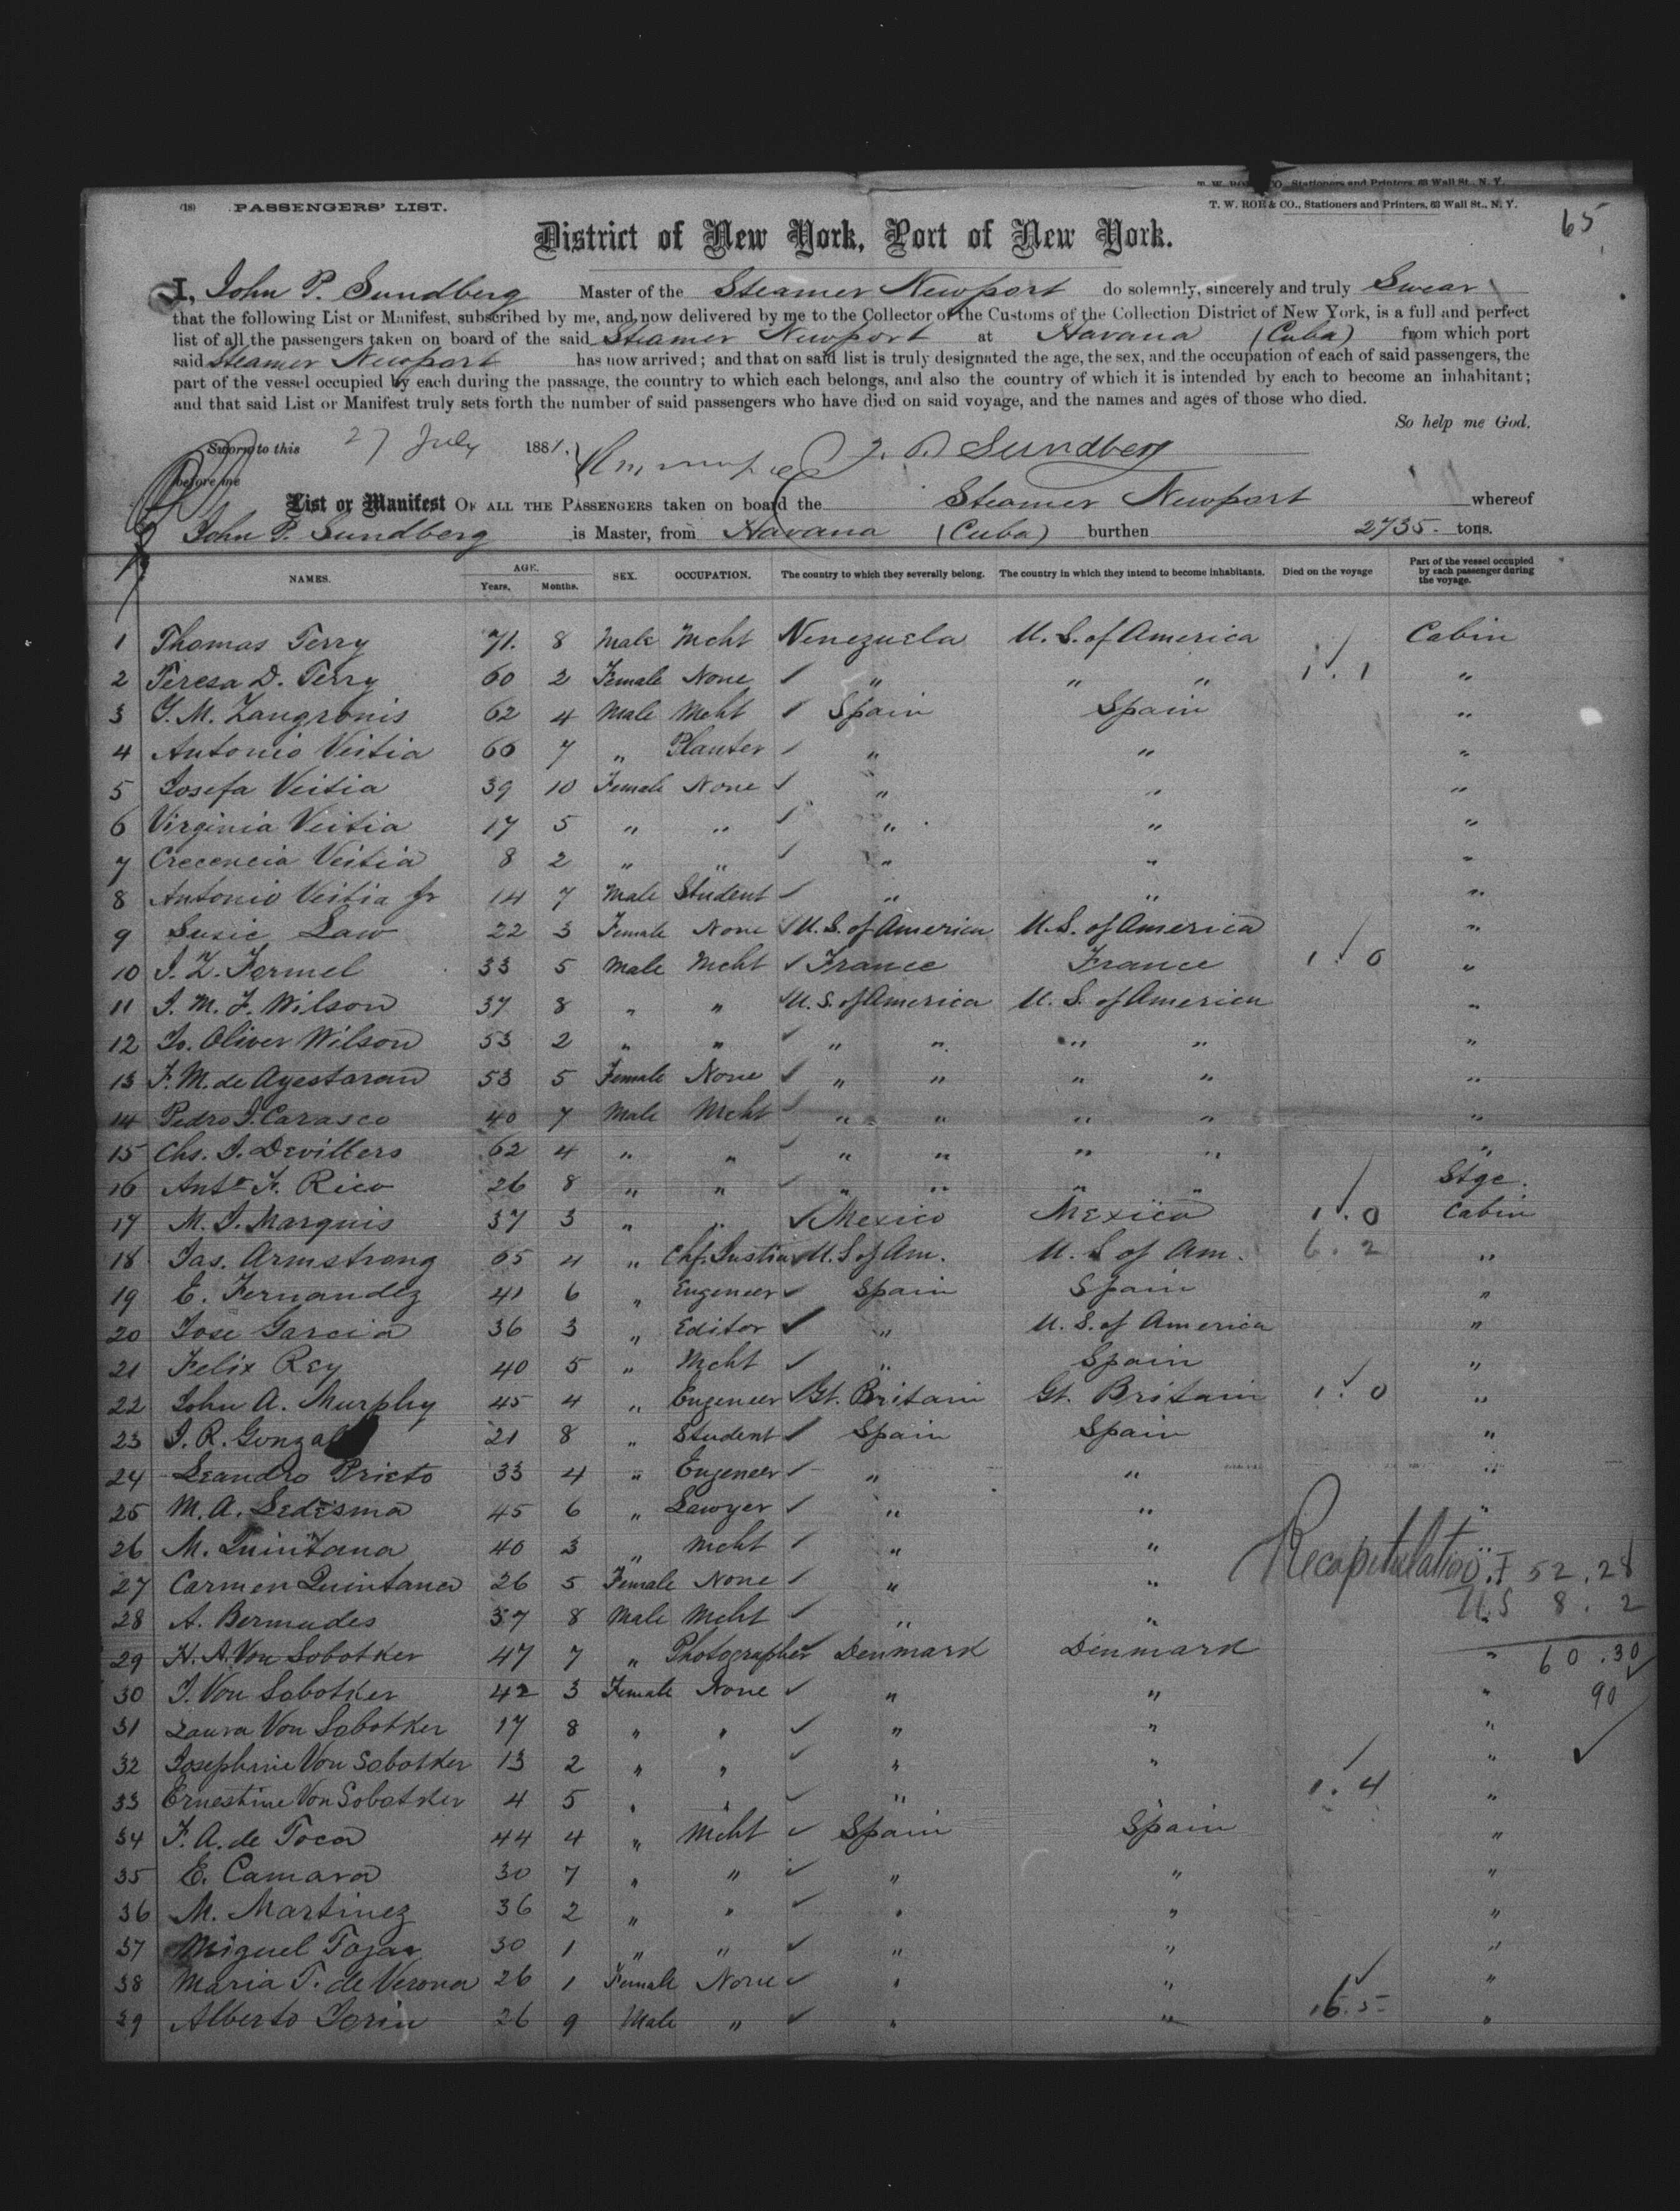 T. W. ROE & CO., Stationers and Printers, 63 Wall St., N. Y.
(18) PASSENGERS' LIST. T. W. ROE & CO., Stationers and Printers, 63 Wall St., N. Y.
65
District of New York, Port of New York.
I, John P. Sundberg Master of the Steamer Newport do solemnly, sincerely and truly Swear
that the following List or Manifest, subscribed by me, and now delivered by me to the Collector of the Customs of the Collection District of New York, is a full and perfect
list of all the passengers taken on board of the said Steamer Newport at Havana (Cuba) from which port
said Steamer Newport has now arrived; and that on said list is truly designated the age, the sex, and the occupation of each of said passengers, the
part of the vessel occupied by each during the passage, the country to which each belongs, and also the country of which it is intended by each to become an inhabitant;
and that said List or Manifest truly sets forth the number of said passengers who have died on said voyage, and the names and ages of those who died.
So help me God.
Sworn to this 27 July 1881. J. P. Sundberg
before me
List or Manifest OF ALL THE PASSENGERS taken on board the Steamer Newport whereof
John P. Sundberg is Master, from Havana (Cuba) burthen 2735. tons.
NAMES. AGE. Years, Months. SEX. OCCUPATION. The country to which they severally belong. The country in which they intend to become inhabitants. Died on the voyage Part of the vessel occupied by each passenger during the voyage.
1 Thomas Terry 71. 8 Male Mcht Venezuela U. S. of America Cabin
2 Teresa D. Terry 60 2 Female None ✓ " " " 1 . 1 "
3 J. M. Zangronis 62 4 Male Mcht ✓ Spain Spain "
4 Antonio Veitia 66 7 " Planter ✓ " " "
5 Josefa Veitia 39 10 Female None ✓ " " "
6 Virginia Veitia 17 5 " " ✓ " " "
7 Crecencia Veitia 8 2 " " ✓ " " "
8 Antonio Veitia Jr 14 7 Male Student ✓ " " "
9 Susie Law 22 3 Female None ✓ U. S. of America U. S. of America "
10 J. Z. Formel 33 5 Male Mcht ✓ France France 1 . 0 "
11 J. M. F. Wilson 37 8 " " ✓ U. S. of America U. S. of America "
12 Jo. Oliver Wilson 53 2 " " ✓ " " " " "
13 F. M. de Ayestaran 53 5 Female None ✓ " " " " "
14 Pedro J. Carasco 40 7 Male Mcht ✓ " " " " "
15 Chs. J. Devillers 62 4 " " ✓ " " " " "
16 Anto. F. Rico 26 8 " " ✓ " " " " Stge.
17 M. J. Marquis 37 3 " " ✓ Mexico Mexico 1 . 0 Cabin
18 Jas. Armstrong 65 4 " Chf. Justice ✓ U. S of Am. U. S of Am. 6 . 2 "
19 E. Fernandez 41 6 " Engeneer ✓ Spain Spain "
20 Jose Garcia 36 3 " Editor ✓ " U. S. of America "
21 Felix Rey 40 5 " Mcht ✓ " Spain "
22 John A. Murphy 45 4 " Engeneer ✓ Gt. Britain Gt. Britain 1 . 0 "
23 J. R. Gonzal 21 8 " Student ✓ Spain Spain "
24 Leandro Prieto 33 4 " Engeneer ✓ " " "
25 M. A. Ledesma 45 6 " Lawyer ✓ " " "
26 M. Quintana 40 3 " Mcht ✓ " " Recapitulation "
27 Carmen Quintana 26 5 Female None ✓ " " F 52 . 28
28 A. Bermudes 37 8 Male Mcht ✓ " " U.S 8 . 2
29 H. A. Von Sobotker 47 7 " Photographer ✓ Denmark Denmark " 60 . 30
30 J. Von Sobotker 42 3 Female None ✓ " " " 90
31 Laura Von Sobotker 17 8 " " ✓ " " "
32 Josephine Von Sobotker 13 2 " " ✓ " " " ✓
33 Ernestine Von Sobotker 4 5 " " ✓ " 1 . 4 "
34 F. A. de Toca 44 4 " Mcht ✓ Spain Spain "
35 E. Camara 30 7 " " ✓ " " "
36 M. Martinez 36 2 " " ✓ " " "
37 Miguel Tojar 30 1 " " ✓ " " "
38 Maria T. de Verona 26 1 Female None ✓ " " "
39 Alberto Jorin 26 9 Male " ✓ " " 16 . 5 "